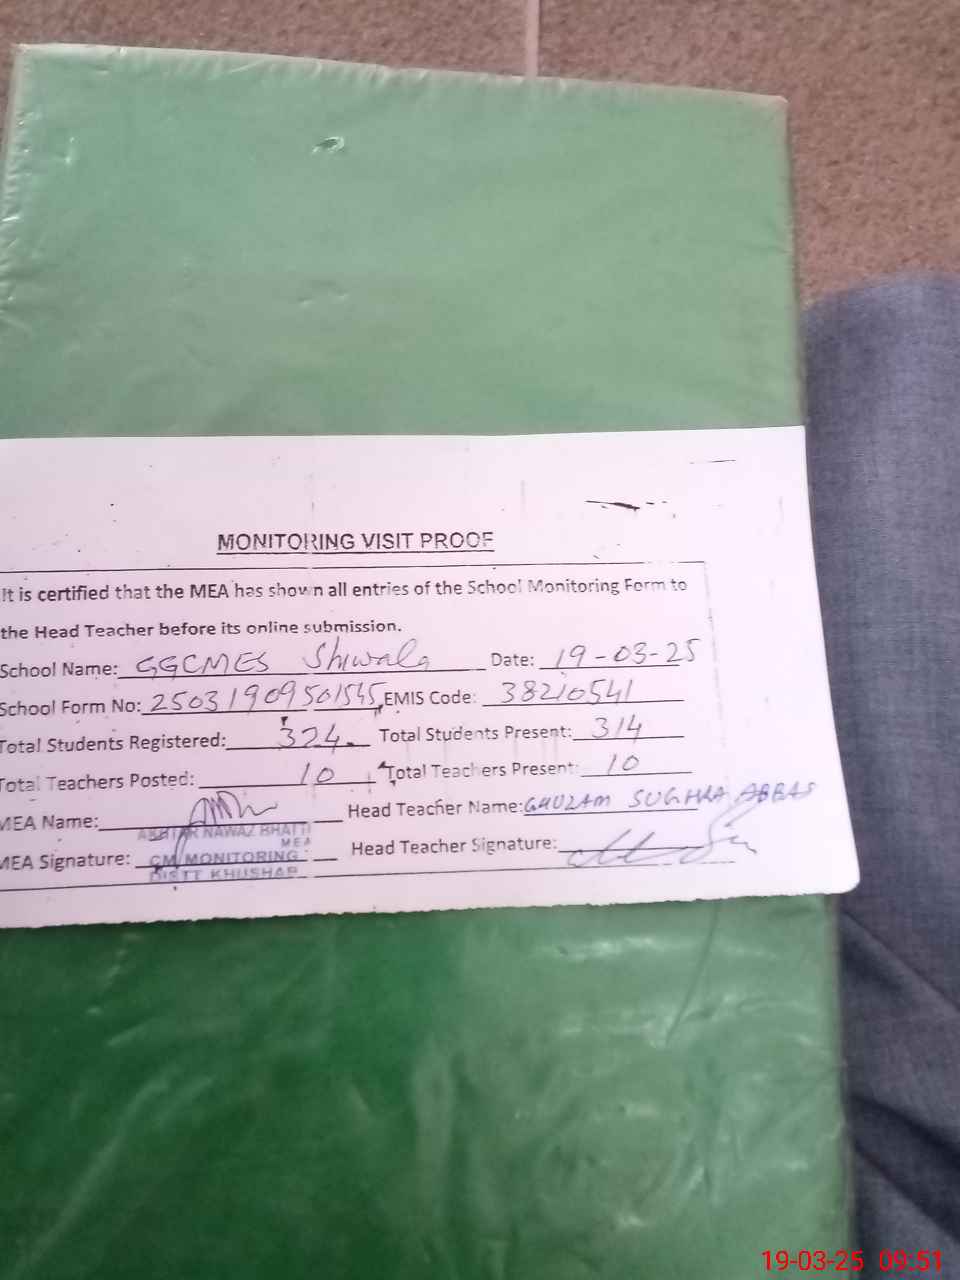 MONITORING VISIT PROOF
It is certified that the MEA has shown all entries of the School Monitoring Form to
the Head Teacher before its online submission.
School Name: GGCMES Shiwala Date: 19-03-25
School Form No: 25031909501545 EMIS Code: 38210541
Total Students Registered: 324 Total Students Present: 314
Total Teachers Posted: 10 Total Teachers Present: 10
MEA Name: Head Teacher Name: GHULAM SUGHRA ABBAS
AKHTAR NAWAZ BHATTI
MEA
MEA Signature: CM MONITORING Head Teacher Signature:
DISTT KHUSHAB
19-03-25 09:51